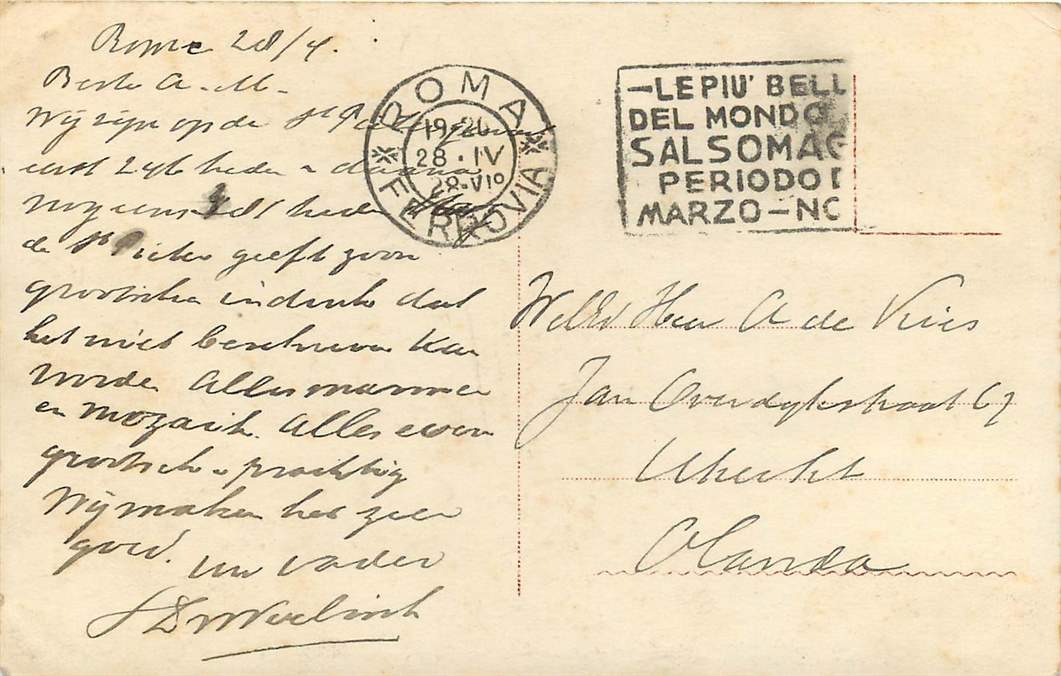 Rome 28/4.
Beste A. M.
Wij zijn op de St P
eerst 246 treden
nog eens 281 treden
de St Pieter geeft zoon
grootschen indruk dat
het niet beschreven kan
worden Alles marmer
en mozaik. Alles even
grootsch prachtig
Wij maken het zeer
goed.
uw vader
ROMA
FERROVIA
19-20
28·IV
28-VIº
—LE PIU' BELL
DEL MONDO
SALSOMAG
PERIODO D
MARZO—NO
Heer A de Vries
Jan Overdykstraat 67
Utrecht
Olanda